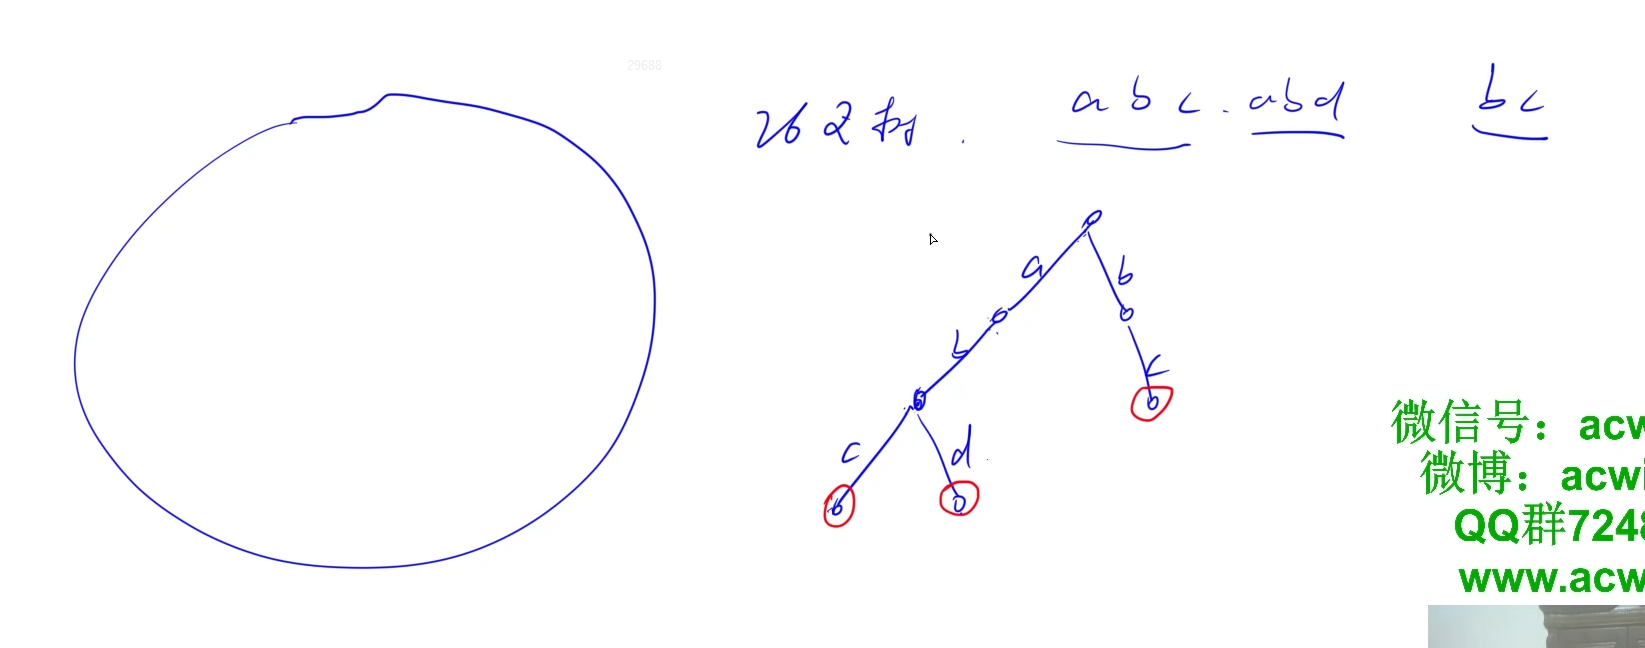 29688
26叉树. abc. abd bc
a b
b c
c d
微信号：acw
微博：acwi
QQ群7248
www.acw